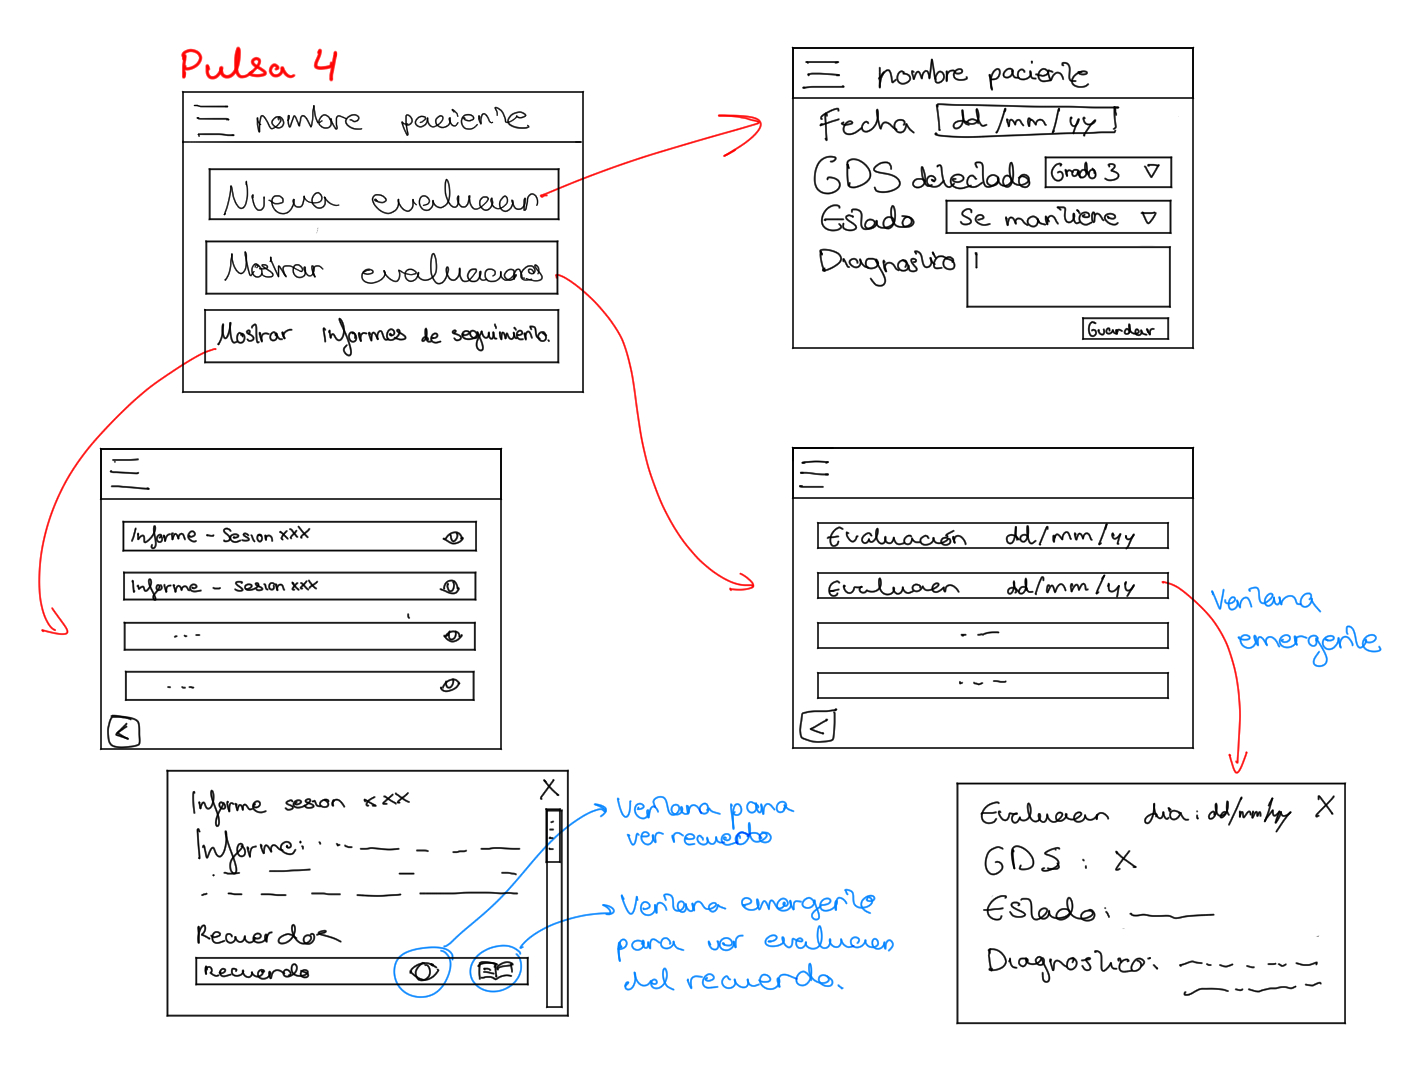 Pulsa 4
nombre paciente
Nueva evaluacion
Mostrar evaluaciones
Mostrar informes de seguimiento.
nombre paciente
Fecha dd/mm/yy
GDS detectado Grado 3
Estado Se mantiene
Diagnostico
Guardar
Informe - Sesion xxx
Informe - Sesion xxx
...
...
<
Evaluación dd/mm/yy
Evaluacion dd/mm/yy
<
Ventana
emergente
Informe sesion xxx X
Informe:
Recuerdos
Recuerdo
Ventana para
ver recuerdo
Ventana emergente
para ver evaluacion
del recuerdo.
Evaluacion dia: dd/mm/yy X
GDS: X
Estado:
Diagnostico: